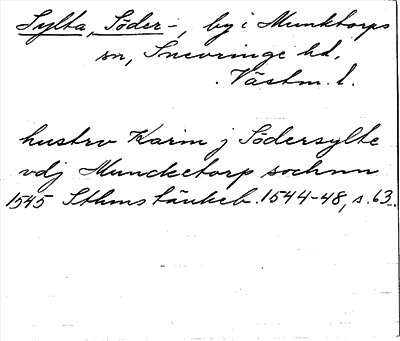 Sylta, Söder-, by i Munktorps
sn, Snevringe hd,
Västm. l.
hustrv Karin j Södersylte
vdj Muncketorp sochnn
1545 Sthms tänkeb. 1544-48, s. 63.